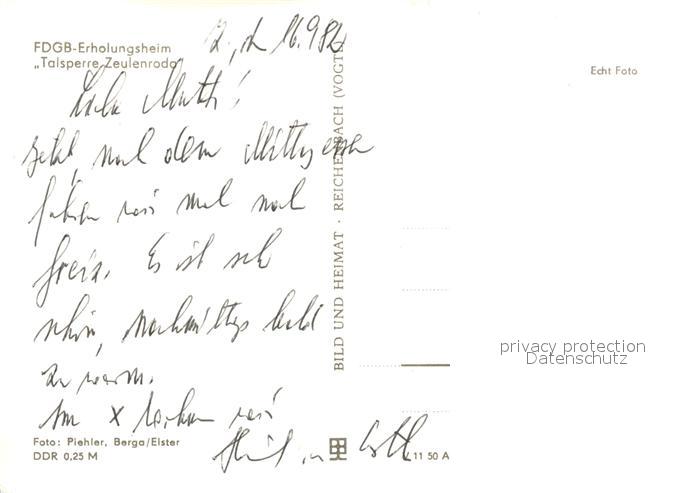 FDGB-Erholungsheim
„Talsperre Zeulenroda"
Echt Foto
Liebe Mutti!
Jetzt, nach dem Mittagessen
fahren wir mal nach
Greiz. Es ist sehr
schön, nachmittags bald
zu warm.
Am X wir
BILD UND HEIMAT · REICHENBACH (VOGTL
privacy protection
Datenschutz
Foto: Piehler, Berga/Elster
DDR 0,25 M
11 50 A